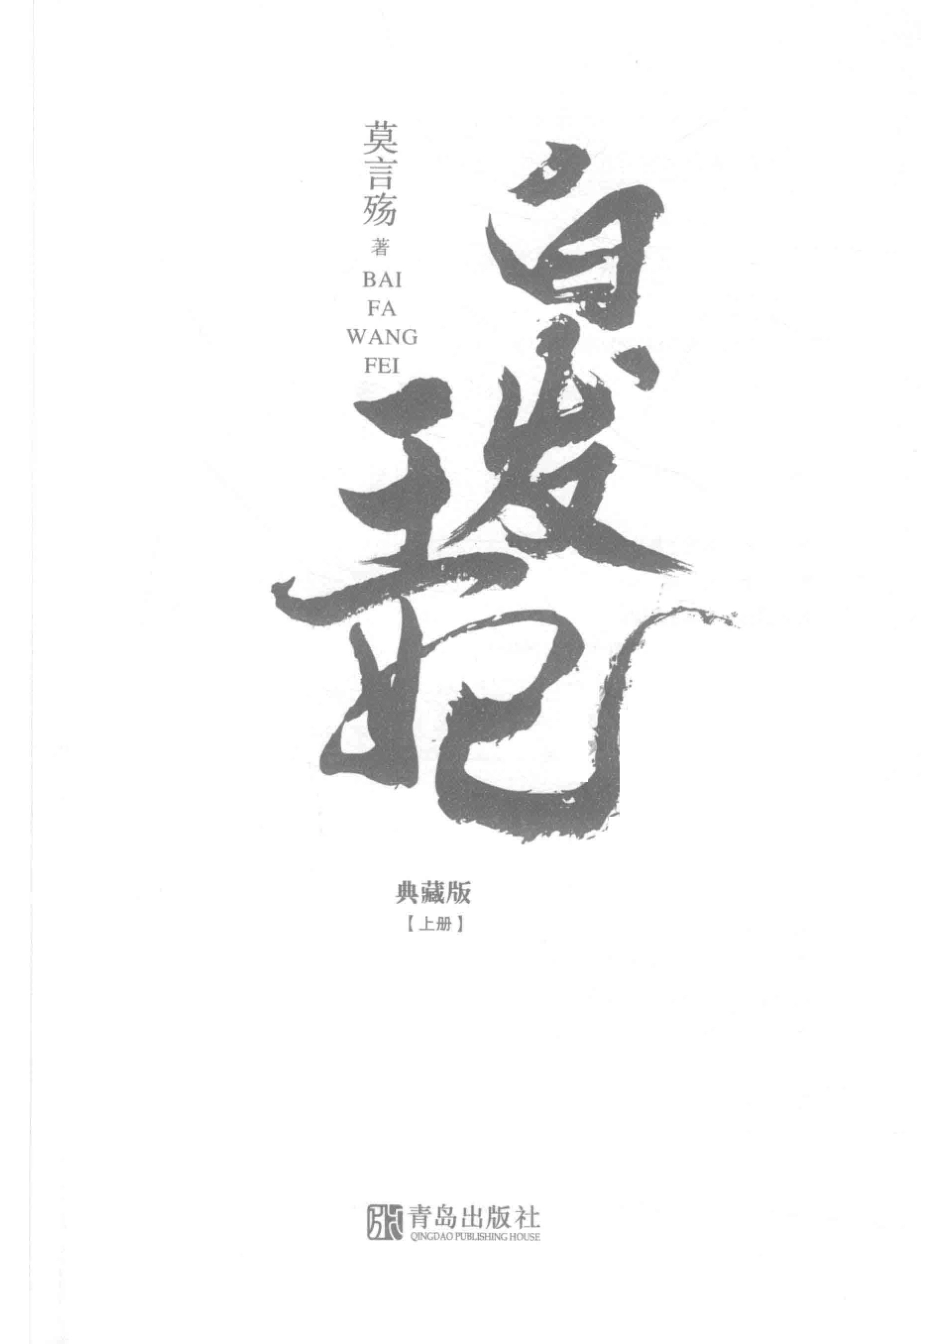 白发
王妃
莫言殇 著
BAI
FA
WANG
FEI
典藏版
【上册】
青岛出版社
QINGDAO PUBLISHING HOUSE